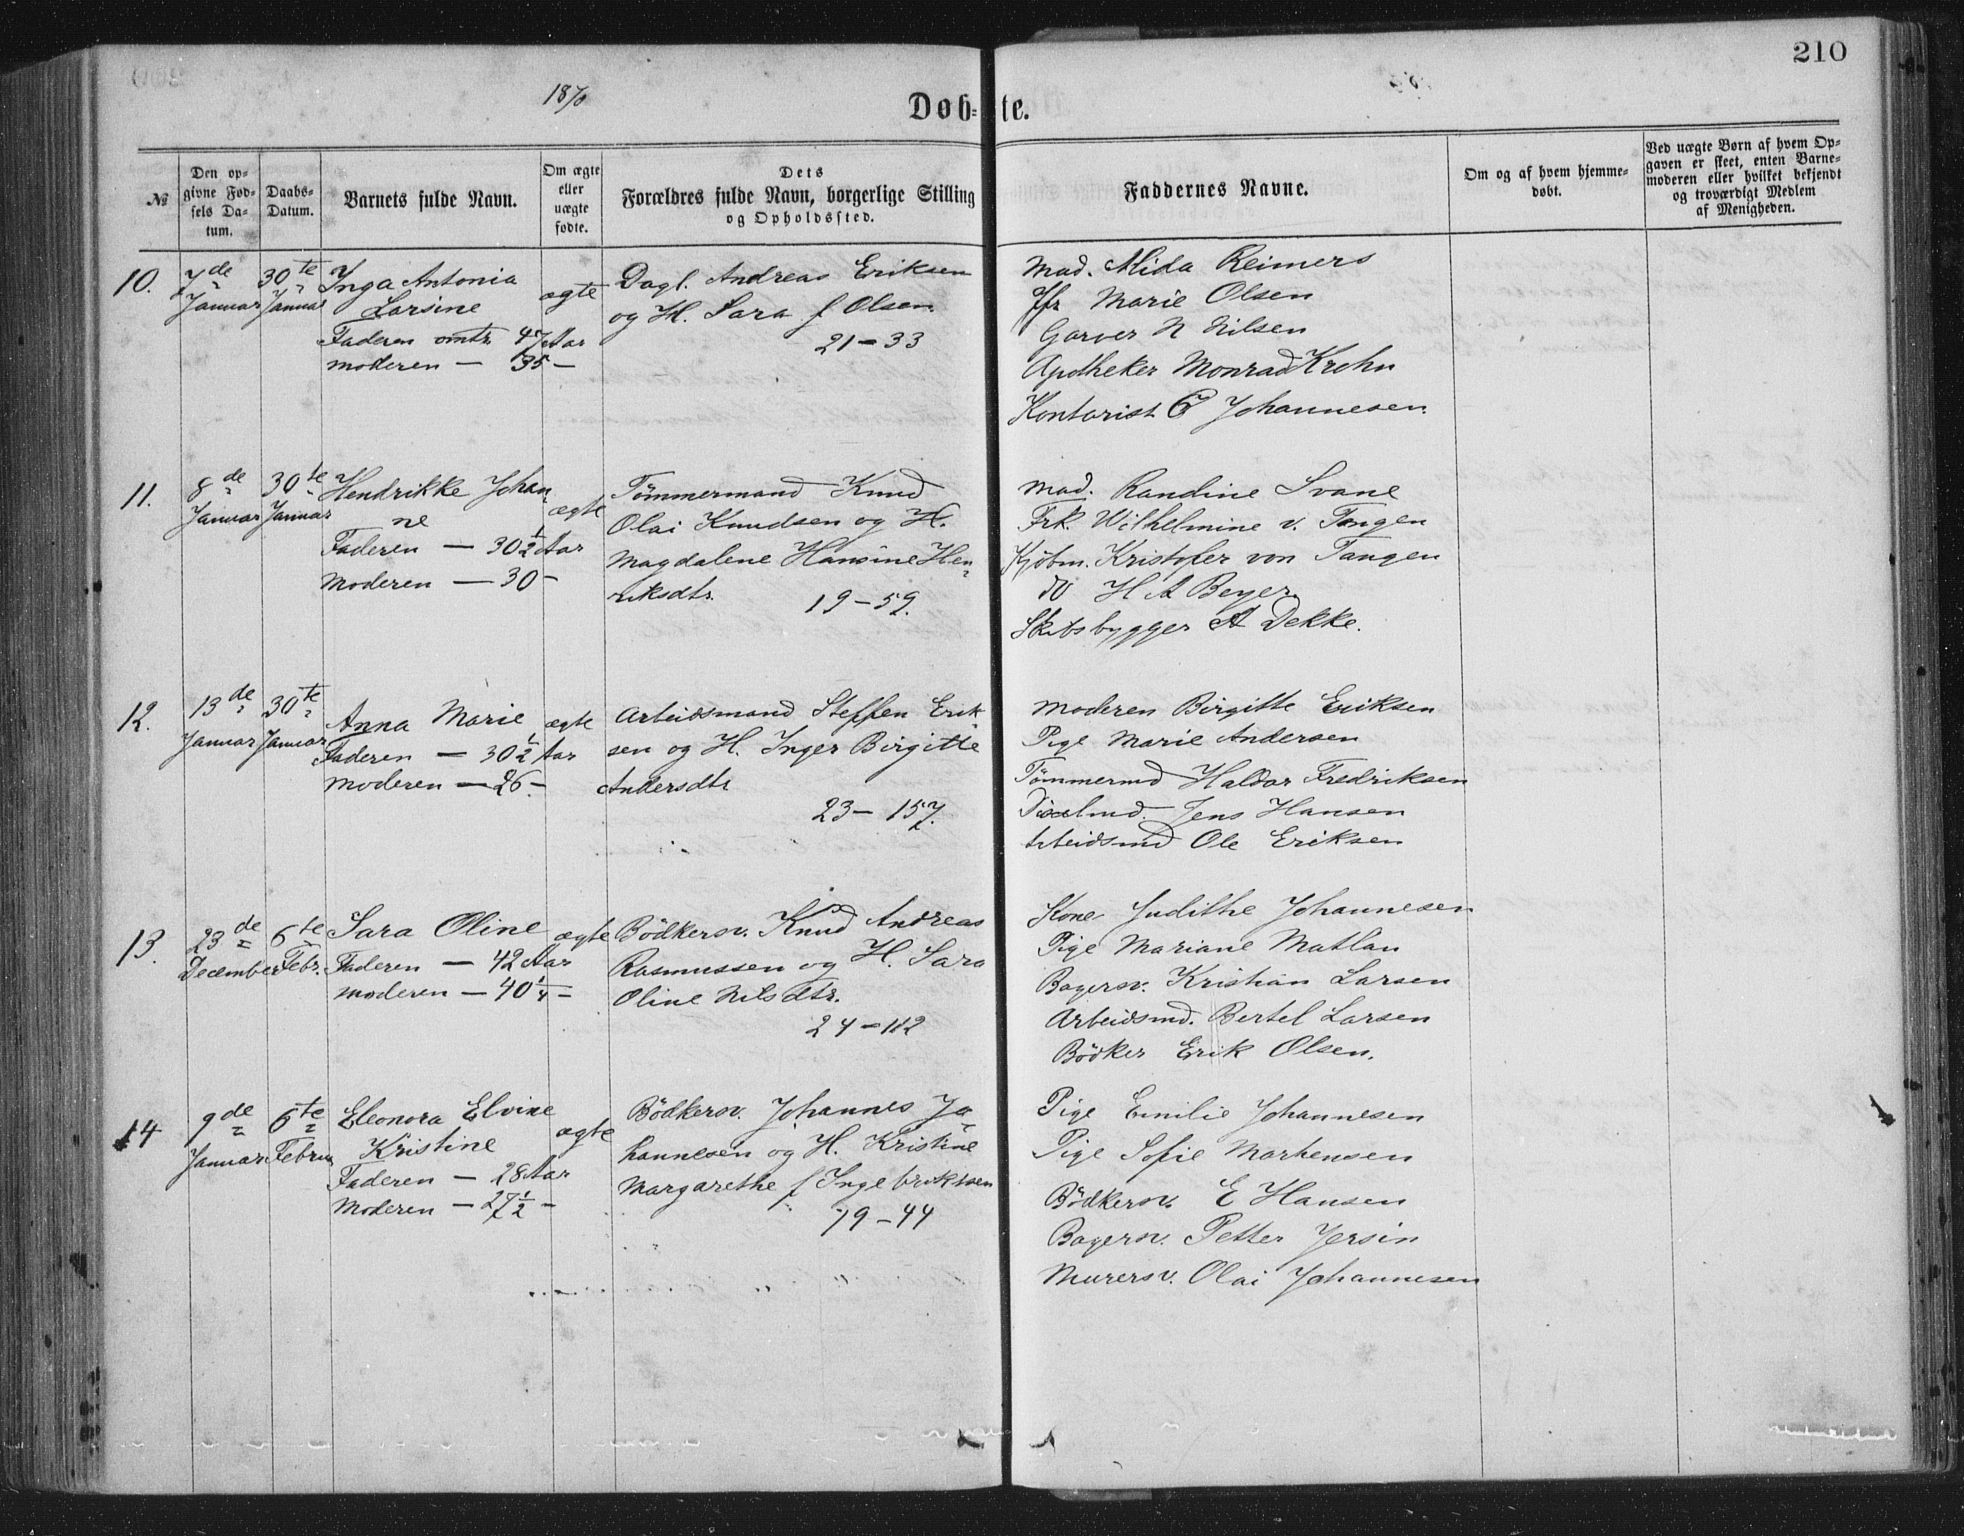 210
1870
Døb-te.
№
Den op-
givne Fød-
sels Da-
tum.
Daabs-
Datum.
Barnets fulde Navn.
Om ægte
eller
uægte
fødte.
Dets
Forældres fulde Navn, borgerlige Stilling
og Opholdssted.
Faddernes Navne.
Om og af hvem hjemme-
døbt.
Ved uægte Børn af hvem Op-
gaven er skeet, enten Barne-
moderen eller hvilket bekjendt
og troværdigt Medlem
af Menigheden.
10.
7de
Januar
30te
Januar
Inga Antonia
Larsine
Faderen omtr. 47 Aar
Moderen — 35 —
ægte
Dagl. Andreas Eriksen
og H. Sara f Olsen.
21-33
Mad. Alida Reimers
Jfr Marie Olsen
Garver N Nilsen
Apotheker Monrad Krohn
Kontorist Johannesen
11.
8de
Januar
30te
Januar
Hendrikke Johan
ne
Faderen — 30½ Aar
Moderen — 30 —
ægte
Tömmermand Knud
Olai Knudsen og H.
Magdalene Hansine Hen-
riksdtr.
19-59.
Mad. Randine Svane
Frk. Wilhelmine v. Tangen
Kjöbm. Kristofer von Tangen
do H A Beyer
Skibsbygger A Dekke.
12.
13de
Januar
30te
Januar
Anna Marie
Faderen — 30½ Aar
Moderen — 26 —
ægte
Arbeidsmand Steffen Erik
sen og H. Inger Birgitte
Andersdtr
23-157.
Moderen Birgitte Eriksen
Pige Marie Andersen
Tömmermd Haldor Fredriksen
Jens Hansen
Arbeidsmd Ole Eriksen
13.
23de
December
6te
Febr.
Sara Oline
Faderen — 42 Aar
Moderen — 40¼ —
ægte
Bödkersv. Knud Andreas
Rasmussen og H. Sara
Oline Nilsdtr.
24-112
Kone Judithe Johannesen
Pige Mariane Matlan
Bagersv. Kristian Larsen
Arbeidsmd. Bertel Larsen
Bödker Erik Olsen.
14
9de
Januar
6te
Februar
Eleonora Elvine
Kristine
Faderen — 28 Aar
Moderen — 27½ —
ægte
Bödkersv. Johannes Jo-
hannesen og H. Kristine
Margarethe f Ingebriktsen
19-44
Pige Emilie Johannesen
Pige Sofie Marhensen
Bödkersv. E Hansen
Bagersv. Petter Jersin
Murersv. Olai Johannesen